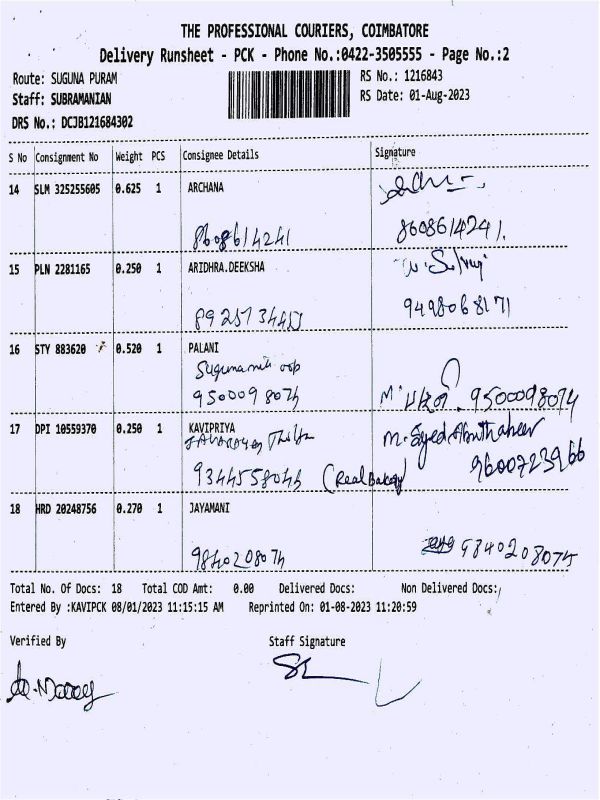 THE PROFESSIONAL COURIERS, COIMBATORE
Delivery Runsheet - PCK - Phone No.:0422-3505555 - Page No.:2
Route: SUGUNA PURAM
RS No.: 1216843
Staff: SUBRAMANIAN
RS Date: 01-Aug-2023
DRS No.: DCJB121684302
S No Consignment No Weight PCS Consignee Details Signature
14 SLM 325255605 0.625 1 ARCHANA
8608614241 8608614241.
15 PLN 2281165 0.250 1 ARIDHRA.DEEKSHA
9498068171
16 STY 883620 0.520 1 PALANI
Suguna mill opp
9500098074 M. பழனி. 9500098074
17 DPI 10559370 0.250 1 KAVIPRIYA
M. Syed Abuthaheer
9344558044 (Real Bakery) 9600723966
18 HRD 20248756 0.270 1 JAYAMANI
9840208074 9840208074
Total No. Of Docs: 18 Total COD Amt: 0.00 Delivered Docs: Non Delivered Docs:
Entered By :KAVIPCK 08/01/2023 11:15:15 AM Reprinted On: 01-08-2023 11:20:59
Verified By Staff Signature